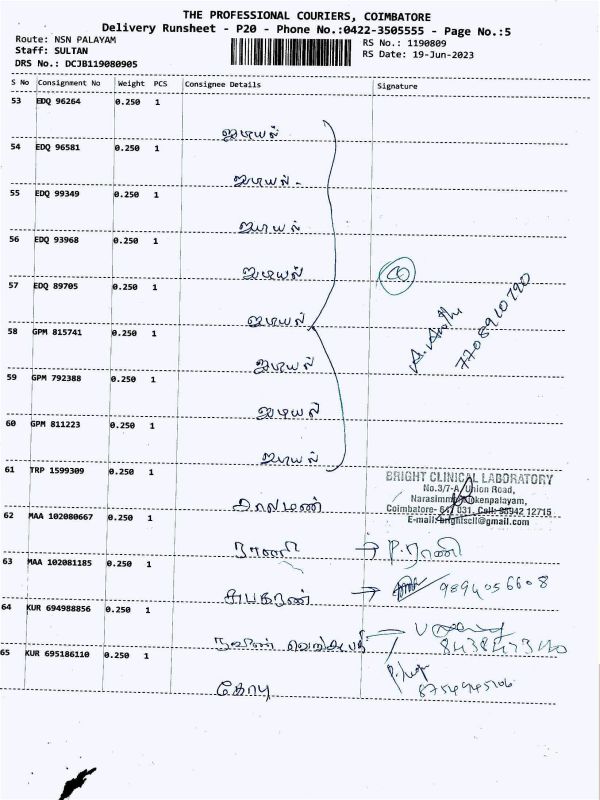 THE PROFESSIONAL COURIERS, COIMBATORE
Delivery Runsheet - P20 - Phone No.:0422-3505555 - Page No.:5
Route: NSN PALAYAM
RS No.: 1190809
Staff: SULTAN
RS Date: 19-Jun-2023
DRS No.: DCJB119080905
S No Consignment No Weight PCS Consignee Details Signature
53 EDQ 96264 0.250 1
ஐடியல்
54 EDQ 96581 0.250 1
ஐடியல் -
55 EDQ 99349 0.250 1
ஐடியல்
56 EDQ 93968 0.250 1
ஐடியல்
57 EDQ 89705 0.250 1
ஐடியல் 7708910790
58 GPM 815741 0.250 1
ஐடியல்
59 GPM 792388 0.250 1
ஐடியல்
60 GPM 811223 0.250 1
ஐடியல்
61 TRP 1599309 0.250 1
BRIGHT CLINICAL LABORATORY
No.3/7-A, Union Road,
Coimbatore- 641 031, Cell: 98942 12715
E-mail: brightscli@gmail.com
62 MAA 102080667 0.250 1
ராணி P. ராணி
63 MAA 102081185 0.250 1
சுபகரண் 9894056608
64 KUR 694988856 0.250 1
65 KUR 695186110 0.250 1
கோபு